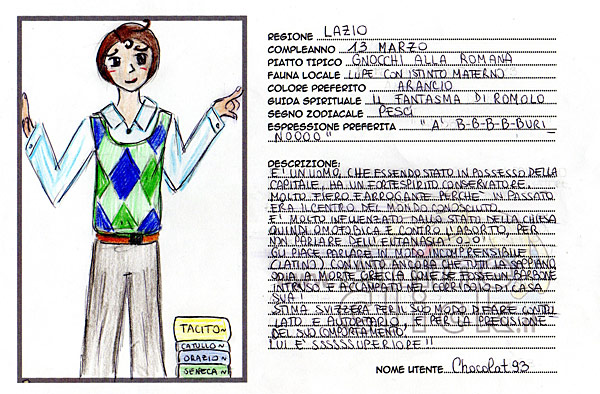 TACITO~
CATULLO~
ORAZIO~
SENECA~
REGIONE LAZIO
COMPLEANNO 13 MARZO
PIATTO TIPICO GNOCCHI ALLA ROMANA
FAUNA LOCALE LUPE CON ISTINTO MATERNO
COLORE PREFERITO ARANCIO
GUIDA SPIRITUALE IL FANTASMA DI ROMOLO
SEGNO ZODIACALE PESCI
ESPRESSIONE PREFERITA "A' B-B-B-B-BURI_
NOOOO"
DESCRIZIONE:
E' UN UOMO, CHE ESSENDO STATO IN POSSESSO DELLA
CAPITALE, HA UN FORTE SPIRITO CONSERVATORE.
MOLTO FIERO E ARROGANTE PERCHE' IN PASSATO
ERA IL CENTRO DEL MONDO CONOSCIUTO.
E' MOLTO INFLUENZATO DALLO STATO DELLA CHIESA
QUINDI OMOFOBICA E CONTRO L'ABORTO, PER
NON PARLARE DELL'EUTANASIA! O-O'
GLI PIACE PARLARE IN MODO INCOMPRENSIBILE
(LATINO) CONVINTO ANCORA CHE TUTTI LA SAPPIANO
ODIA A MORTE GRECIA COME SE FOSSE UN BARBONE
INTRUSO E ACCAMPATO NEL CORRIDOIO DI CASA
SUA!
STIMA SVIZZERA PER IL SUO MODO DI FARE CONTROL
LATO E AUTORITARIO, E PER LA PRECISIONE
DEL SUO COMPORTAMENTO!
LUI E' SSSSSSUPERIORE!!
NOME UTENTE Chocolat93